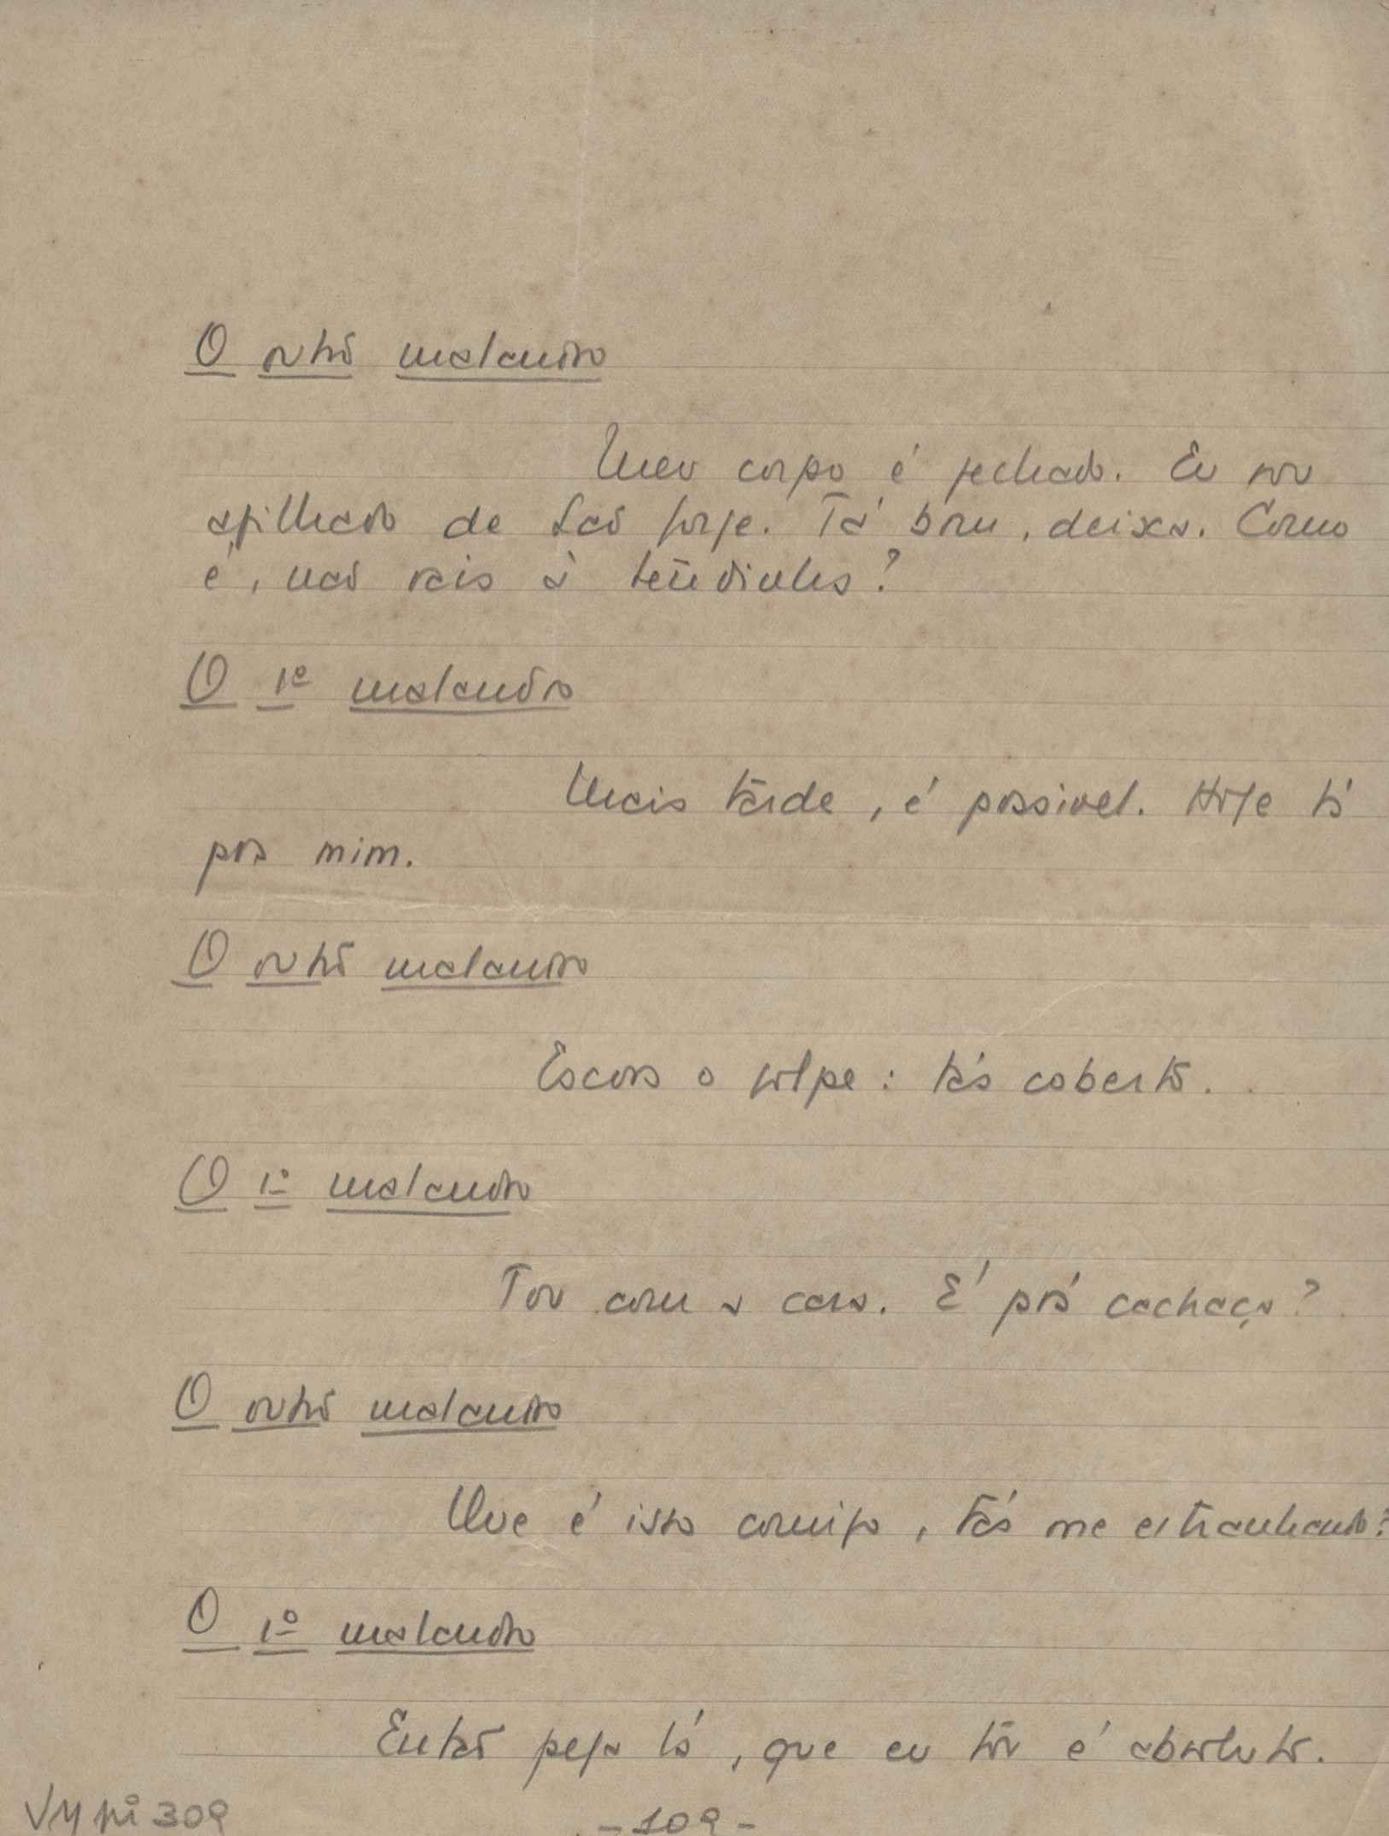 O outro malandro
Meu corpo é fechado. Eu sou
afilhado de São Jorge. Tá bom, deixa. Como
é, não vais à tendinha?
O 1º malandro
Mais tarde, é possivel. Hoje tá
pra mim.
O outro malandro
Escora o golpe: tás coberto.
O 1º malandro
Tou com a cara. E' prá cachaça?
O outro malandro
Que é isso comigo, tás me estranhando?
O 1º malandro
Então pega lá, que eu tou é absoluto.
VM pi 309
- 109 -